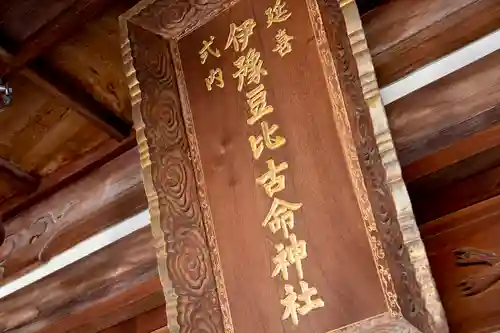 延喜
式内
伊豫豆比古命神社